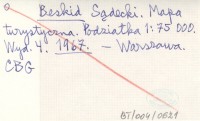 Beskid Sądecki. Mapa
turystyczna. Podziałka 1:75 000.
Wyd. 4. 1967. – Warszawa.
CBG
BT/004/0621